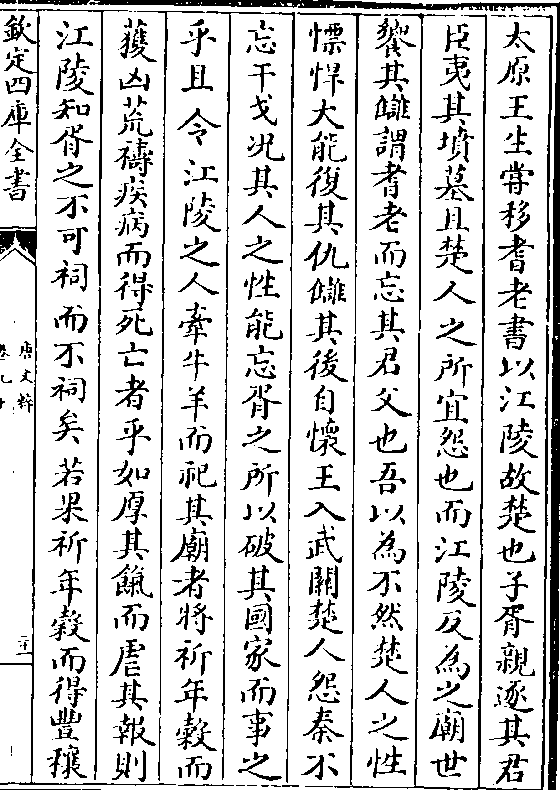 太原王生嘗移耆老書以江陵故楚也子胥親逐其君
臣夷其墳墓且楚人之所宜怨也而江陵反為之廟世
饗其讎謂耆老而忘其君父也吾以為不然楚人之性
慓悍大能復其仇讎其後自懷王入武關楚人怨秦不
忘干戈况其人之性能忘胥之所以破其國家而事之
乎且令江陵之人牽牛羊而祀其廟者將祈年穀而
獲凶荒禱疾病而得死亡者乎如厚其餼而虐其報則
江陵知胥之不可祠而不祠矣若果祈年穀而得豐穰
欽定四庫全書
唐文粹
卷九十
二十一